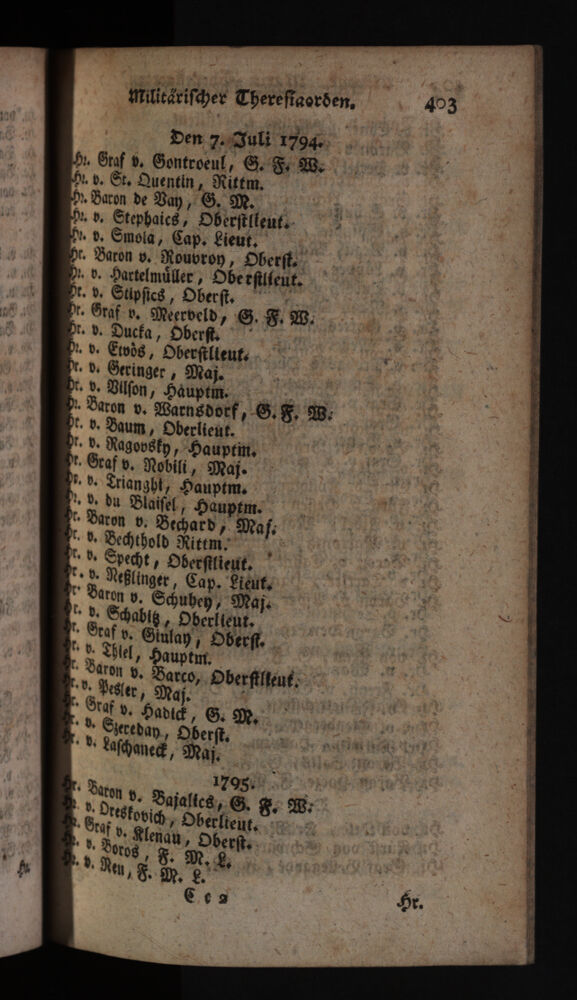 Militärischer Theresiaorden. 403
Den 7. Juli 1794.
Hr. Graf v. Gontroeul, G. F. W.
Hr. v. St. Quentin, Rittm.
Hr. Baron de Vay, G. M.
Hr. v. Stephaics, Oberstlieut.
Hr. v. Smola, Cap. Lieut.
Hr. Baron v. Rouvroy, Oberst.
Hr. v. Hartelmüller, Oberstlieut.
Hr. v. Stipsics, Oberst.
Hr. Graf v. Meerveld, G. F. W.
Hr. v. Ducka, Oberst.
Hr. v. Etvös, Oberstlieut.
Hr. v. Geringer, Maj.
Hr. v. Vilson, Hauptm.
Hr. Baron v. Warnsdorf, G. F. W.
Hr. v. Baum, Oberlieut.
Hr. v. Ragovsky, Hauptm.
Hr. Graf v. Nobili, Maj.
Hr. v. Trianghi, Hauptm.
Hr. v. du Blaisel, Hauptm.
Hr. Baron v. Bechard, Maj.
Hr. v. Bechthold Rittm.
Hr. v. Specht, Oberstlieut.
Hr. v. Neßlinger, Cap. Lieut.
Hr. Baron v. Schuhey, Maj.
Hr. v. Schabitz, Oberlieut.
Hr. Graf v. Giulay, Oberst.
Hr. v. Thiel, Hauptm.
Hr. Baron v. Barco, Oberstlieut.
Hr. v. Pesler, Maj.
Hr. Graf v. Hadick, G. M.
Hr. v. Szereday, Oberst.
Hr. v. Laschaneck, Maj.
1795.
Hr. Baron v. Bajalics, G. F. W.
Hr. v. Oreskovich, Oberlieut.
Hr. Graf v. Klenau, Oberst.
Hr. v. Boros, F. M. L.
Hr. v. Neu, F. M. L.
C c 2 Hr.